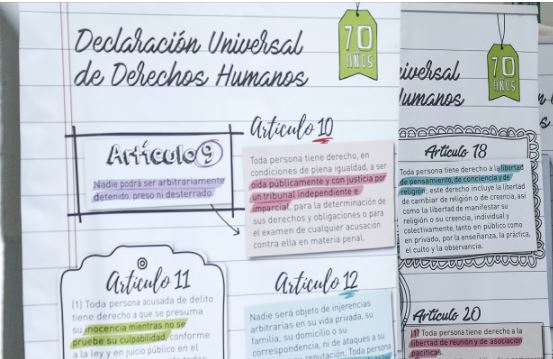 Declaración Universal
de Derechos Humanos
70
AÑOS
Artículo 9
Nadie podrá ser arbitrariamente
detenido, preso ni desterrado.
Artículo 10
Toda persona tiene derecho, en
condiciones de plena igualdad, a ser
oída públicamente y con justicia por
un tribunal independiente e
imparcial, para la determinación de
sus derechos y obligaciones o para
el examen de cualquier acusación
contra ella en materia penal.
Artículo 11
(1) Toda persona acusada de delito
tiene derecho a que se presuma
su inocencia mientras no se
pruebe su culpabilidad, conforme
a la ley y en juicio público en el
Artículo 12
Nadie será objeto de injerencias
arbitrarias en su vida privada, su
familia, su domicilio o su
correspondencia, ni de ataques a su
reputación. Toda persona
iversal
umanos
70
AÑOS
Artículo 18
Toda persona tiene derecho a la libertad
de pensamiento, de conciencia y de
religión; este derecho incluye la libertad
de cambiar de religión o de creencia, así
como la libertad de manifestar su
religión o su creencia, individual y
colectivamente, tanto en público como
en privado, por la enseñanza, la práctica,
el culto y la observancia.
Artículo 20
(1) Toda persona tiene derecho a la
libertad de reunión y de asociación
pacíficas.